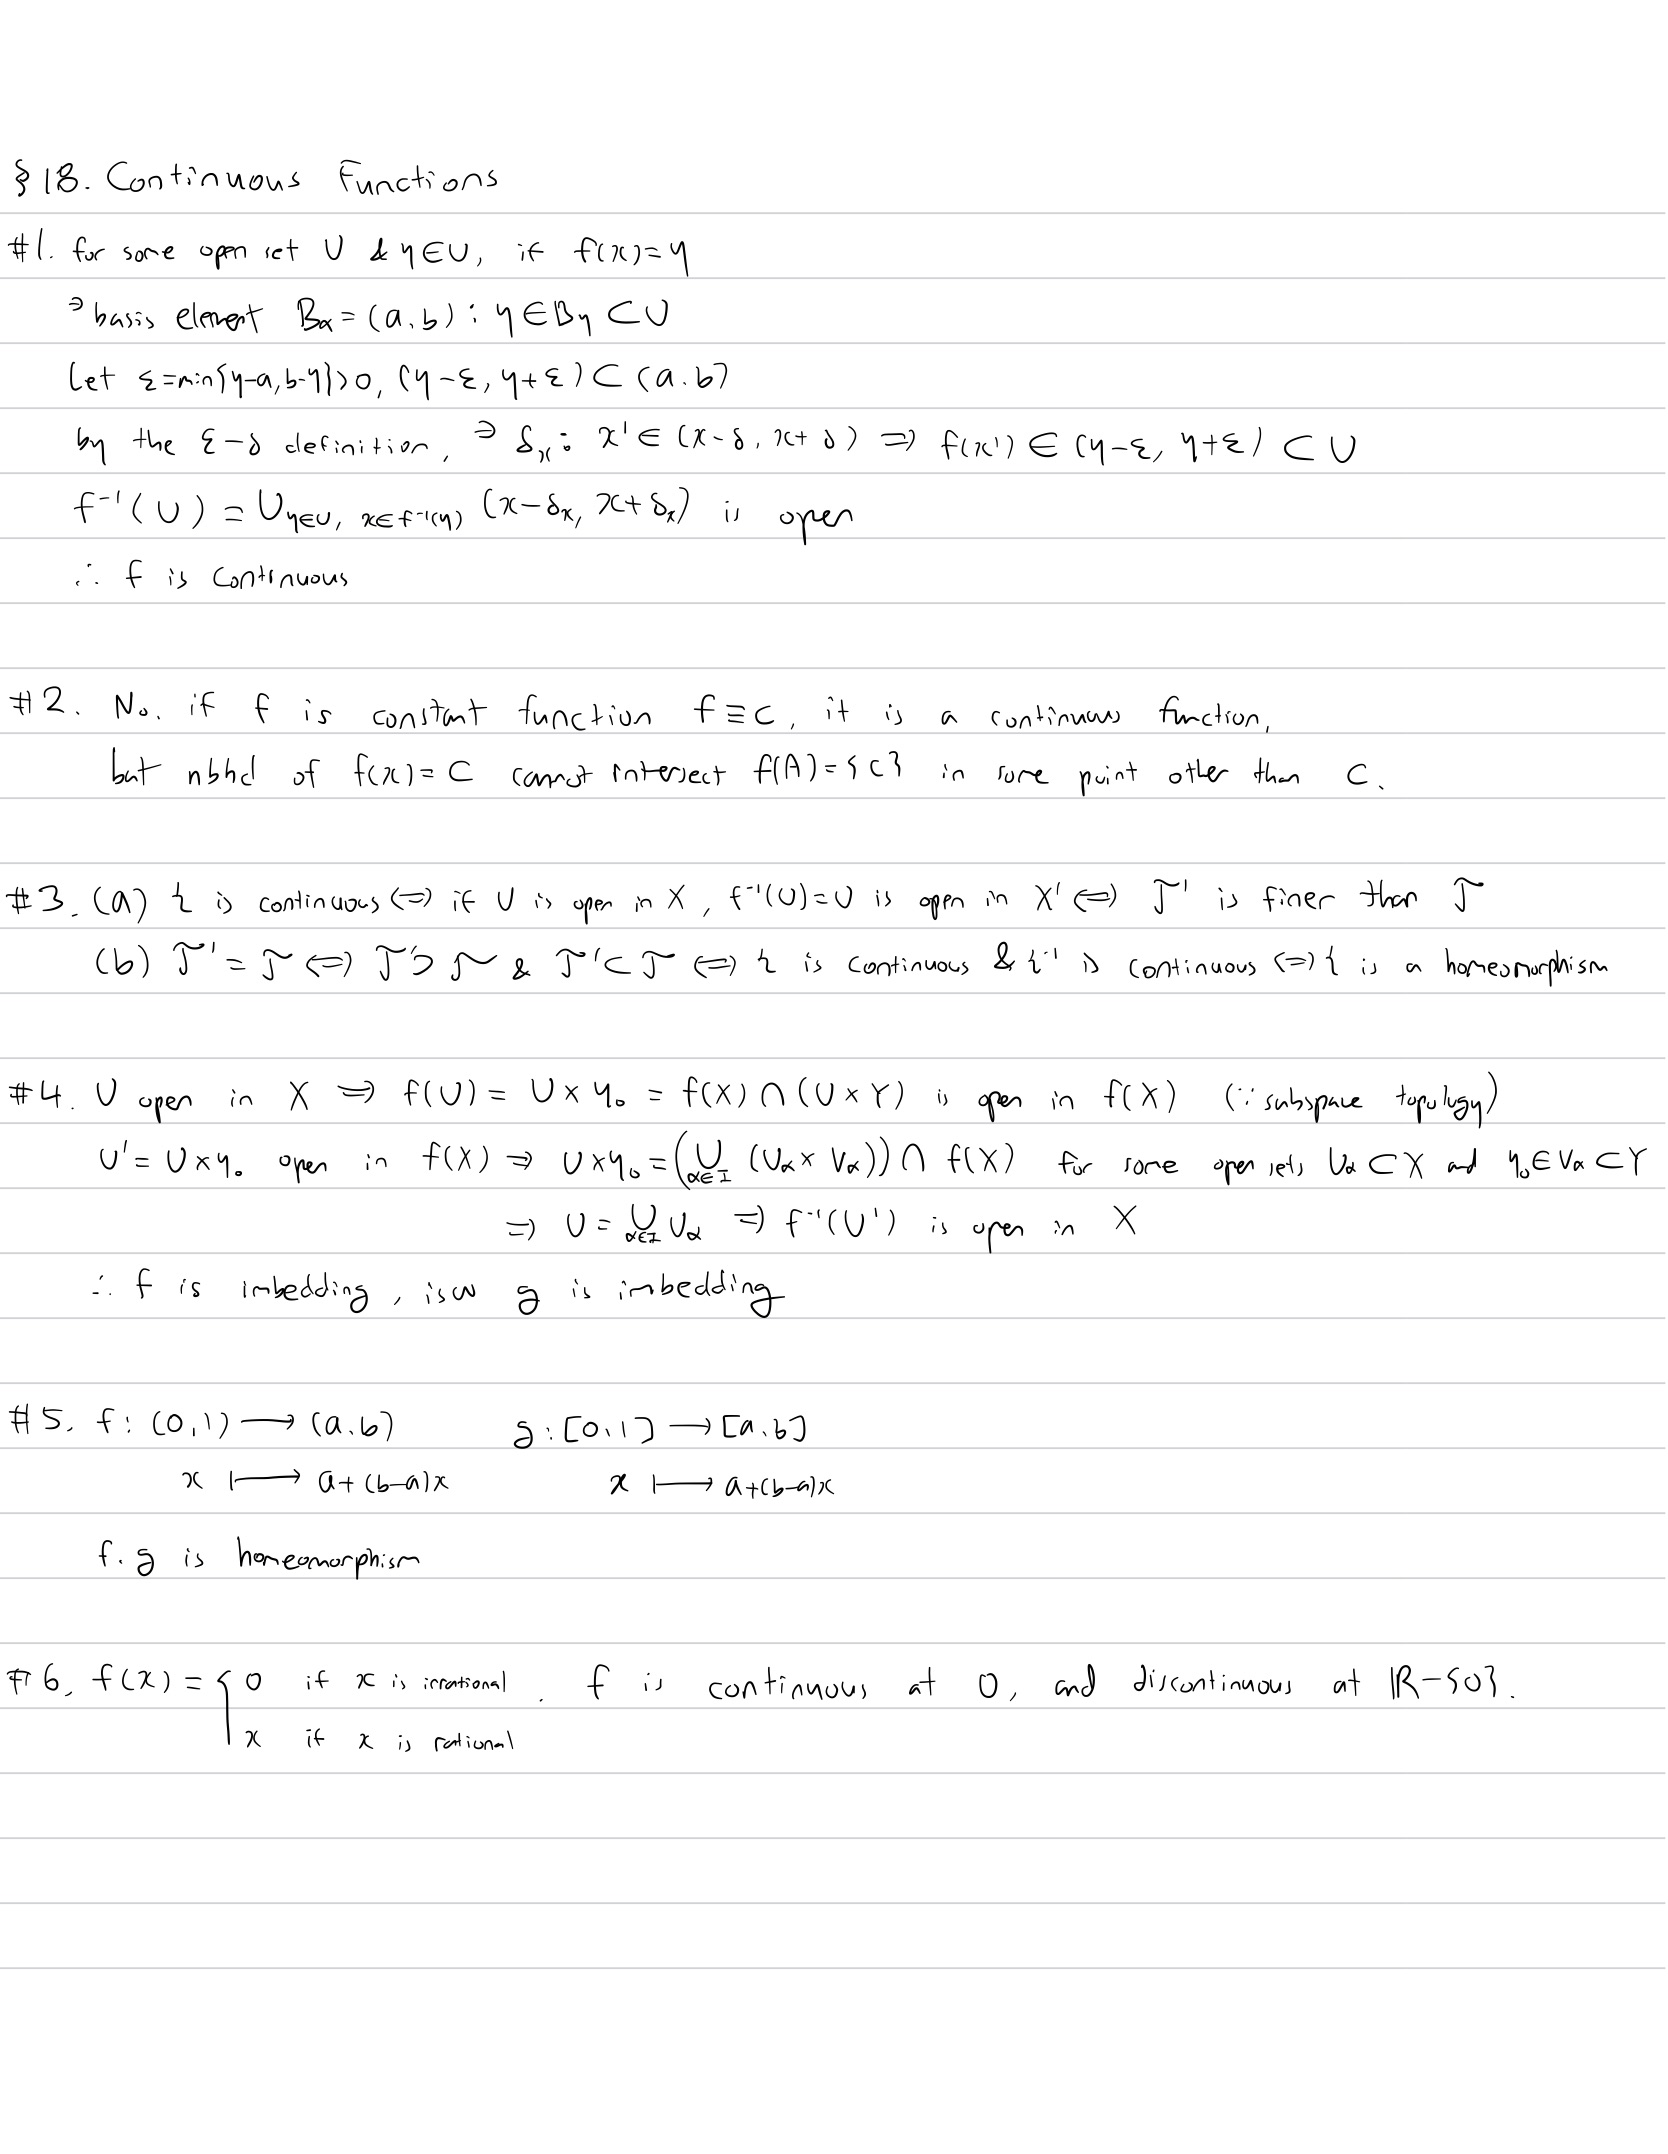 § 18. Continuous Functions
#1. for some open set U & y∈U, if f(x)=y
∃ basis element Bα = (a, b) : y∈By ⊂U
Let ε=min{y-a, b-y}>0, (y-ε, y+ε) ⊂ (a, b)
by the ε-δ definition, ∃ δx : x' ∈ (x-δ, x+δ) ⇒ f(x') ∈ (y-ε, y+ε) ⊂ U
f⁻¹(U) = ∪y∈U, x∈f⁻¹(y) (x-δx, x+δx) is open
∴ f is continuous
#2. No. if f is constant function f≡c, it is a continuous function,
but nbhd of f(x)=c cannot intersect f(A)={c} in some point other than c.
#3. (a) i is continuous ⇔ if U is open in X, f⁻¹(U)=U is open in X' ⇔ T' is finer than T
(b) T'=T ⇔ T'⊃T & T'⊂T ⇔ i is continuous & i⁻¹ is continuous ⇔ i is a homeomorphism
#4. U open in X ⇒ f(U) = U × y₀ = f(X) ∩ (U×Y) is open in f(X) (∵ subspace topology)
U' = U×y₀ open in f(X) ⇒ U×y₀ = (∪α∈I (Uα × Vα)) ∩ f(X) for some open sets Uα ⊂ X and y₀∈Vα ⊂Y
⇒ U = ∪α∈I Uα ⇒ f⁻¹(U') is open in X
∴ f is imbedding, isw g is imbedding
#5. f: (0,1) ⟶ (a, b) g: [0,1] ⟶ [a, b]
x ⟼ a+(b-a)x x ⟼ a+(b-a)x
f, g is homeomorphism
#6. f(x) = { 0 if x is irrational . f is continuous at 0, and discontinuous at ℝ-{0}.
x if x is rational